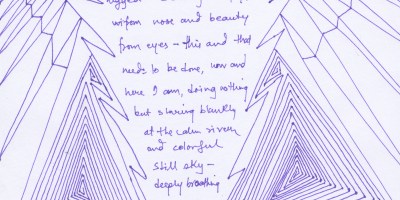 wifem nose and beauty
from eyes – this and that
needs to be done, now and
here I am, doing nothing
but staring blankly
at the calm river
and colorful
still sky –
deeply breathing